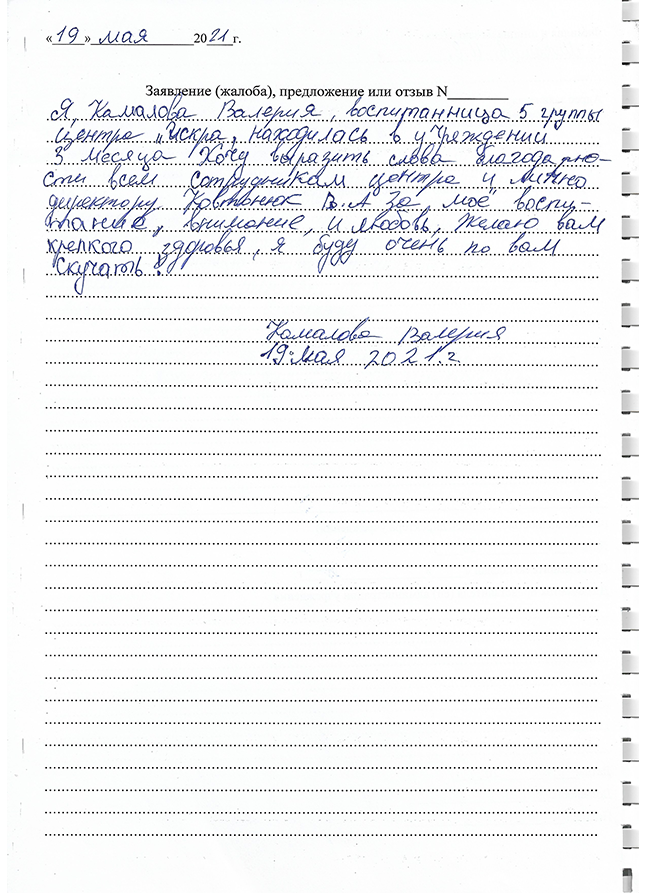 «19» мая 2021г.
Заявление (жалоба), предложение или отзыв N
Я, Камалова Валерия, воспитанница 5 группы
центра „Искра, находилась в учреждении
3 месяца Хочу выразить слова благодарно-
сти всем сотрудникам центра и лично
директору Ковтонюк В.А За, моё воспи-
тание, внимание, и любовь, желаю вам
крепкого здоровья, я буду очень по вам
Скучать!
Камалова Валерия
19 мая 2021.г